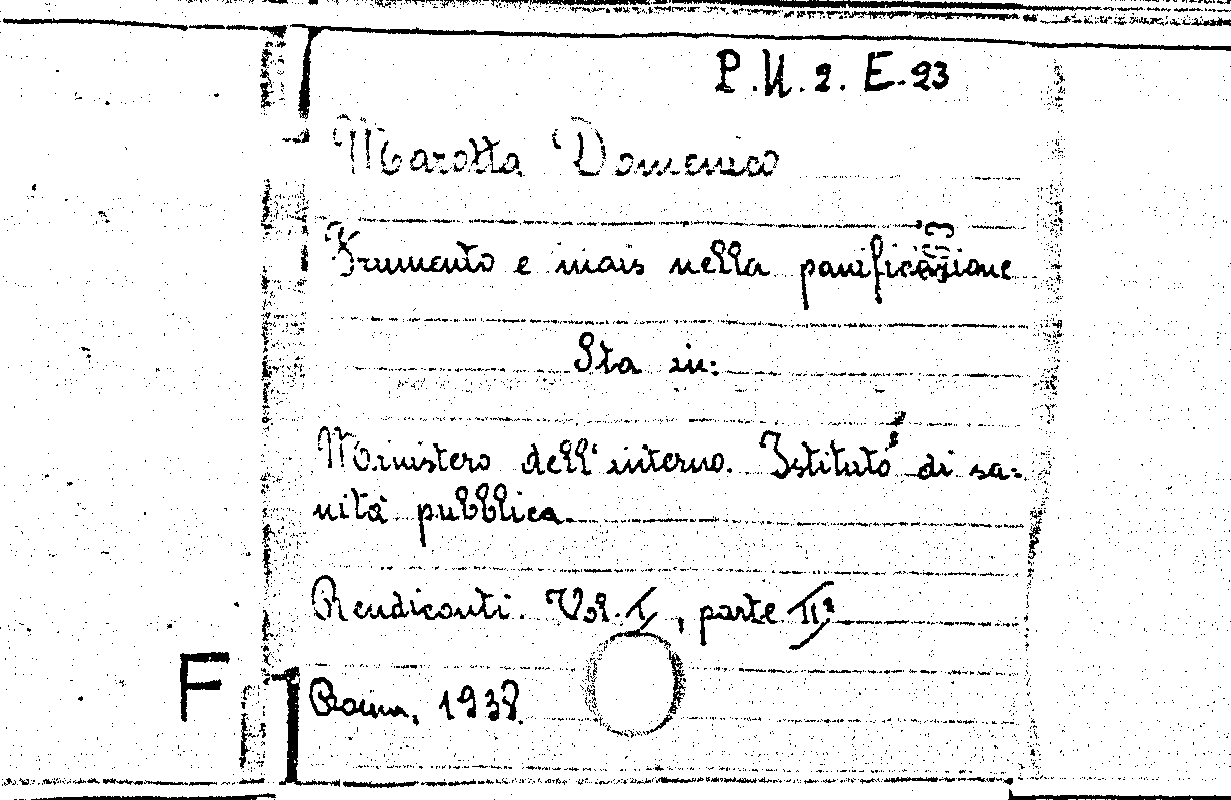 P.U.2. E.23
Marotta Domenico
Frumento e mais nella panificazione
Sta in:
Ministero dell'interno. Istituto di sa-
nità pubblica.
Rendiconti. Vol. I, parte IIª
Roma, 1938.
F